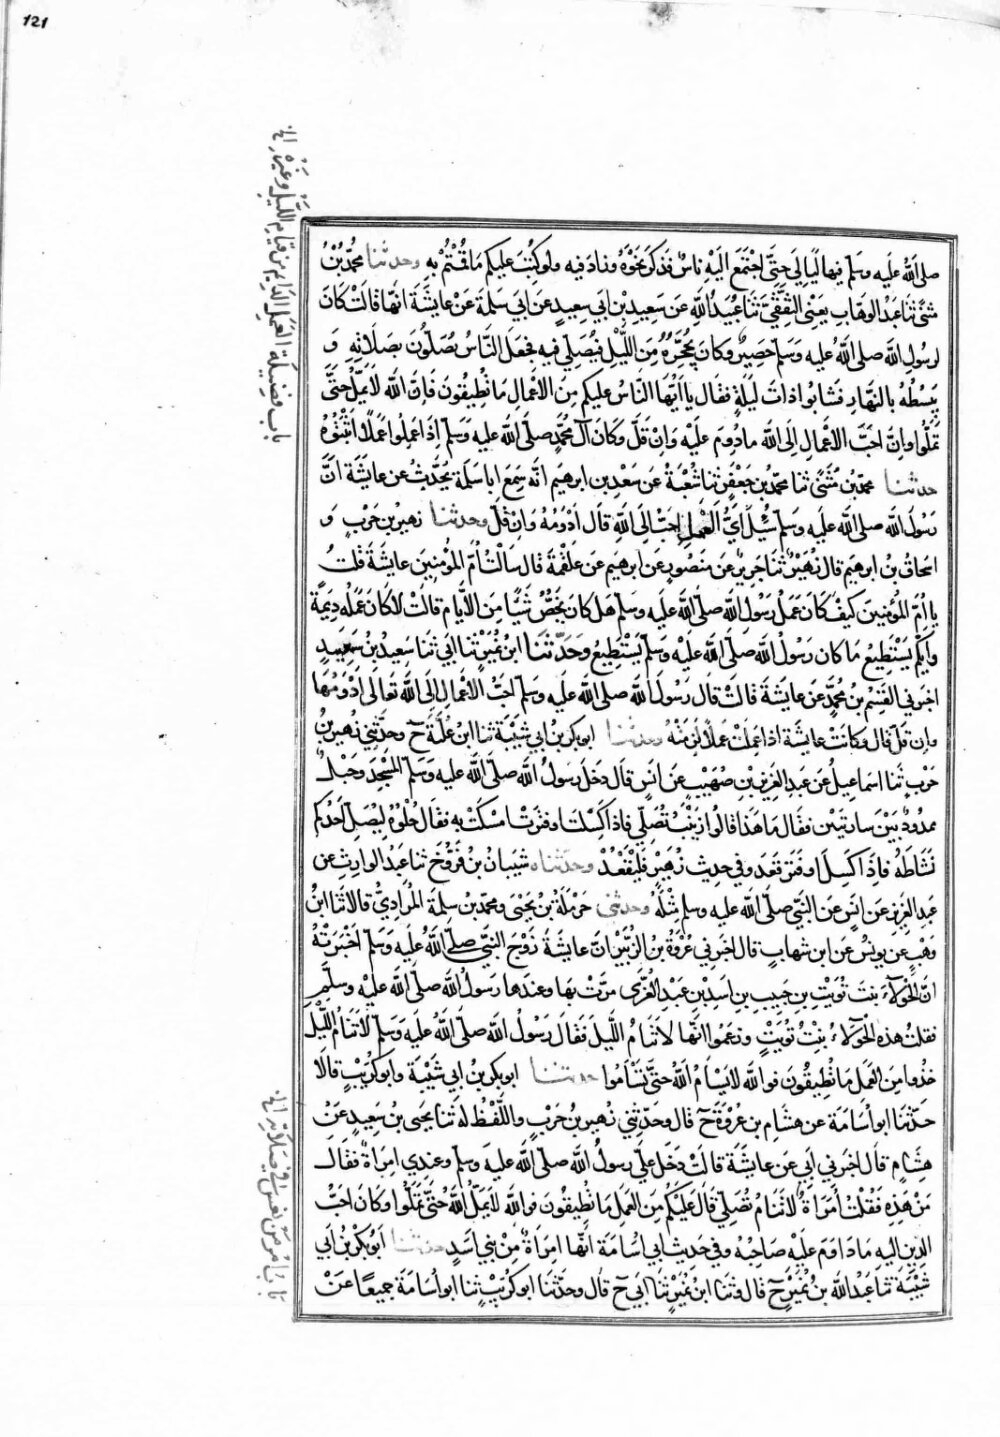 121
باب فضيلة العمل الدايم من قيام الليل وغيره الخ
صلى الله عليه وسلم فيها ليالي حتى اجتمع اليه ناس فذكر نحوه وزاد فيه ولو كتب عليكم ما قمتم به وحدثنا محمد بن
مثنى ثنا عبد الوهاب يعنى الثقفي ثنا عبيد الله عن سعيد بن ابي سعيد عن ابي سلمة عن عائشة انها قالت كان
لرسول الله صلى الله عليه وسلم حصير وكان يحجره من الليل فيصلي فيه فجعل الناس يصلون بصلاته و
يبسطه بالنهار فثابوا ذات ليلة فقال يا ايها الناس عليكم من الاعمال ما تطيقون فان الله لا يمل حتى
تملوا وان احب الاعمال الى الله ما دووم عليه وان قل وكان آل محمد صلى الله عليه وسلم اذا عملوا عملا اثبتوه
حدثنا محمد بن مثنى ثنا محمد بن جعفر ثنا شعبة عن سعد بن ابرهيم انه سمع ابا سلمة يحدث عن عايشة ان
رسول الله صلى الله عليه وسلم سئل اي العمل احب الى الله قال ادومه وان قل وحدثنا زهير بن حرب و
اسحاق بن ابرهيم قال زهير ثنا جرير عن منصور عن ابرهيم عن علقمة قال سالت ام المؤمنين عايشة قلت
يا ام المؤمنين كيف كان عمل رسول الله صلى الله عليه وسلم هل كان يخص شيئا من الايام قالت لا كان عمله ديمة
وايكم يستطيع ما كان رسول الله صلى الله عليه وسلم يستطيع وحدثنا ابن نمير ثنا ابي ثنا سعيد بن سعيد
اخبرني القسم بن محمد عن عايشة قالت قال رسول الله صلى الله عليه وسلم احب الاعمال الى الله تعالى ادومها
وان قل قال وكانت عايشة اذا عملت عملا لزمته وحدثنا ابو بكر بن ابي شيبة ثنا ابن علية ح وحدثني زهير بن
حرب ثنا اسماعيل عن عبد العزيز بن صهيب عن انس قال دخل رسول الله صلى الله عليه وسلم المسجد وحبل
ممدود بين ساريتين فقال ما هذا قالوا زينب تصلي فاذا كسلت او فترت امسكت به فقال حلوه ليصل احدكم
نشاطه فاذا كسل او فتر قعد وفي حديث زهير فليقعد وحدثناه شيبان بن فروخ ثنا عبد الوارث عن
عبد العزيز عن انس عن النبي صلى الله عليه وسلم مثله وحدثني حرملة بن يحيى ومحمد بن سلمة المرادي قالا ثنا ابن
وهب عن يونس عن ابن شهاب قال اخبرني عروة بن الزبير ان عايشة زوج النبي صلى الله عليه وسلم اخبرته
ان الحولاء بنت تويت بن حبيب بن اسد بن عبد العزى مرت بها وعندها رسول الله صلى الله عليه وسلم
فقلت هذه الحولاء بنت تويت وزعموا انها لا تنام الليل فقال رسول الله صلى الله عليه وسلم لا تنام الليل
خذوا من العمل ما تطيقون فوالله لا يسام الله حتى تساموا حدثنا ابو بكر بن ابي شيبة وابو كريب قالا
حدثنا ابو اسامة عن هشام بن عروة ح قال وحدثني زهير بن حرب واللفظ له ثنا يحيى بن سعيد عن
هشام قال اخبرني ابي عن عايشة قالت دخل علي رسول الله صلى الله عليه وسلم وعندي امراة فقال
من هذه فقلت امراة لا تنام تصلي قال عليكم من العمل ما تطيقون فوالله لا يمل الله حتى تملوا وكان احب
الدين اليه ما داوم عليه صاحبه وفي حديث ابي اسامة انها امراة من بني اسد حدثنا ابو بكر بن ابي
شيبة ثنا عبد الله بن نمير ح قال وثنا ابن نمير ثنا ابي ح قال وحدثنا ابو كريب ثنا ابو اسامة جميعا عن
باب امر من نعس في صلاته الخ